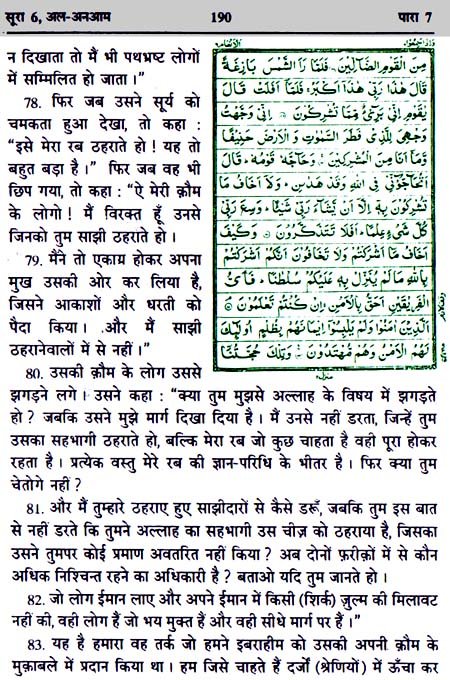 सूरा 6, अल-अनआम 190 पारा 7
न दिखाता तो मैं भी पथभ्रष्ट लोगों
में सम्मिलित हो जाता ।”
78. फिर जब उसने सूर्य को
चमकता हुआ देखा, तो कहा :
“इसे मेरा रब ठहराते हो ! यह तो
बहुत बड़ा है ।” फिर जब वह भी
छिप गया, तो कहा : “ऐ मेरी क़ौम
के लोगो ! मैं विरक्त हूँ उनसे
जिनको तुम साझी ठहराते हो ।
79. मैंने तो एकाग्र होकर अपना
मुख उसकी ओर कर लिया है,
जिसने आकाशों और धरती को
पैदा किया । और मैं साझी
ठहरानेवालों में से नहीं ।”
وَاِذَا سَمِعُوْا ٧
الْاَنْعَام ٦
مِنَ الْقَوْمِ الضَّآلِّيْنَ ۝ فَلَمَّا رَاَ الشَّمْسَ بَازِغَةً
قَالَ هٰذَا رَبِّىْ هٰذَآ اَكْبَرُ ۚ فَلَمَّآ اَفَلَتْ قَالَ
يٰقَوْمِ اِنِّىْ بَرِىْٓءٌ مِّمَّا تُشْرِكُوْنَ ۝ اِنِّىْ وَجَّهْتُ
وَجْهِىَ لِلَّذِىْ فَطَرَ السَّمٰوٰتِ وَالْاَرْضَ حَنِيْفًا
وَّمَآ اَنَا مِنَ الْمُشْرِكِيْنَ ۝ وَحَآجَّهٗ قَوْمُهٗ ؕ قَالَ
اَتُحَآجُّوْٓنِّىْ فِى اللّٰهِ وَقَدْ هَدٰىنِ ؕ وَلَآ اَخَافُ مَا
تُشْرِكُوْنَ بِهٖٓ اِلَّآ اَنْ يَّشَآءَ رَبِّىْ شَيْـًٔا ؕ وَسِعَ رَبِّىْ
كُلَّ شَىْءٍ عِلْمًا ؕ اَفَلَا تَتَذَكَّرُوْنَ ۝ وَكَيْفَ
اَخَافُ مَآ اَشْرَكْتُمْ وَلَا تَخَافُوْنَ اَنَّكُمْ اَشْرَكْتُمْ
بِاللّٰهِ مَا لَمْ يُنَزِّلْ بِهٖ عَلَيْكُمْ سُلْطٰنًا ؕ فَاَىُّ
الْفَرِيْقَيْنِ اَحَقُّ بِالْاَمْنِ ۚ اِنْ كُنْتُمْ تَعْلَمُوْنَ ۝
اَلَّذِيْنَ اٰمَنُوْا وَلَمْ يَلْبِسُوْٓا اِيْمَانَهُمْ بِظُلْمٍ اُولٰٓئِكَ
لَهُمُ الْاَمْنُ وَهُمْ مُّهْتَدُوْنَ ۝ وَتِلْكَ حُجَّتُنَآ
80. उसकी क़ौम के लोग उससे
झगड़ने लगे । उसने कहा : “क्या तुम मुझसे अल्लाह के विषय में झगड़ते
हो ? जबकि उसने मुझे मार्ग दिखा दिया है । मैं उनसे नहीं डरता, जिन्हें तुम
उसका सहभागी ठहराते हो, बल्कि मेरा रब जो कुछ चाहता है वही पूरा होकर
रहता है । प्रत्येक वस्तु मेरे रब की ज्ञान-परिधि के भीतर है । फिर क्या तुम
चेतोगे नहीं ?
81. और मैं तुम्हारे ठहराए हुए साझीदारों से कैसे डरूँ, जबकि तुम इस बात
से नहीं डरते कि तुमने अल्लाह का सहभागी उस चीज़ को ठहराया है, जिसका
उसने तुमपर कोई प्रमाण अवतरित नहीं किया ? अब दोनों फ़रीक़ों में से कौन
अधिक निश्चिन्त रहने का अधिकारी है ? बताओ यदि तुम जानते हो ।
82. जो लोग ईमान लाए और अपने ईमान में किसी (शिर्क) ज़ुल्म की मिलावट
नहीं की, वही लोग हैं जो भय मुक्त हैं और वही सीधे मार्ग पर हैं ।”
83. यह है हमारा वह तर्क जो हमने इबराहीम को उसकी अपनी क़ौम के
मुक़ाबले में प्रदान किया था । हम जिसे चाहते हैं दर्जों (श्रेणियों) में ऊँचा कर